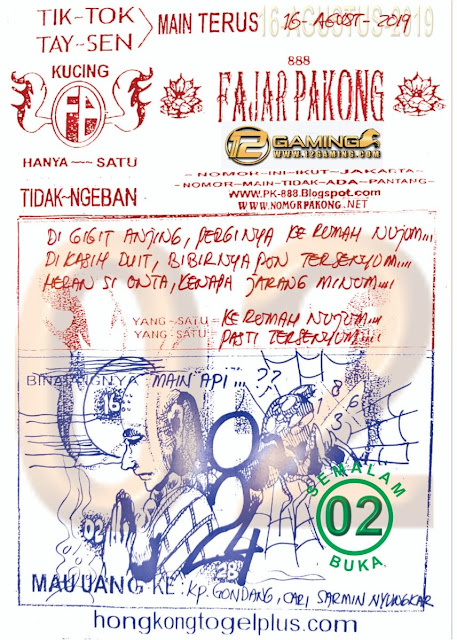 TIK-TOK
TAY-SEN
MAIN TERUS
16 - AGUST - 2019
16-AGUSTUS-2019
KUCING
FP
HANYA~~SATU
888
FAJAR PAKONG
12 GAMING
WWW.12GAMING.COM
TIDAK-NGEBAN
-NOMOR-INI-IKUT-JAKARTA-
-NOMOR-MAIN-TIDAK-ADA-PANTANG-
WWW.PK-888.Blogspot.com
WWW.NOMORPAKONG.NET
DI GIGIT ANJING, PERGINYA KE RUMAH NUJUM....
DI KASIH DUIT, BIBIRNYA PUN TERSENYUM....
HERAN SI ONTA, KENAPA JARANG MINUM....
YANG-SATU= KE RUMAH NUJUM....
YANG-SATU= PASTI TERSENYUM....
02
BINATANGNYA MAIN API... ??
16
8
6
3
02
8
24
28
SEMALAM
02
BUKA
MAU UANG KE: KP. GONDANG, CARI SARMIN NYUNGKAR
hongkongtogelplus.com